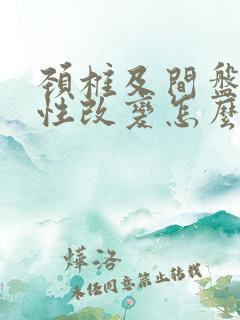 頚椎及間盤
性改變怎麼
燁洛
未経同意禁止转载